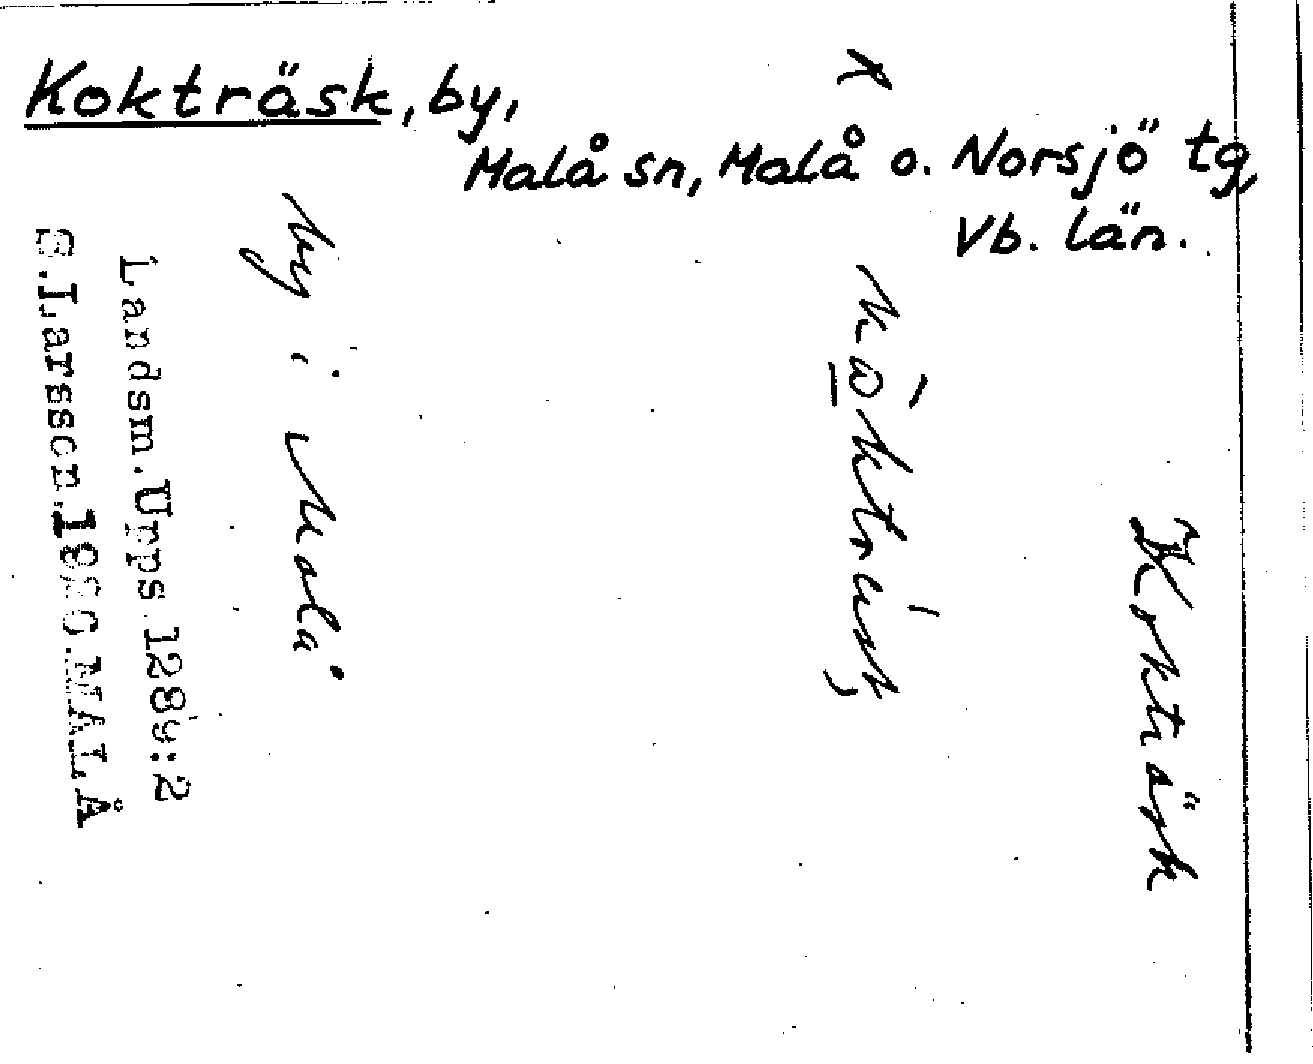 Kokträsk, by,
Malå sn, Malå o. Norsjö tg,
Vb. län.
Koktäsk
by i Malå
Landsm. Upps. 1289:2
S. Larsson. MALÅ